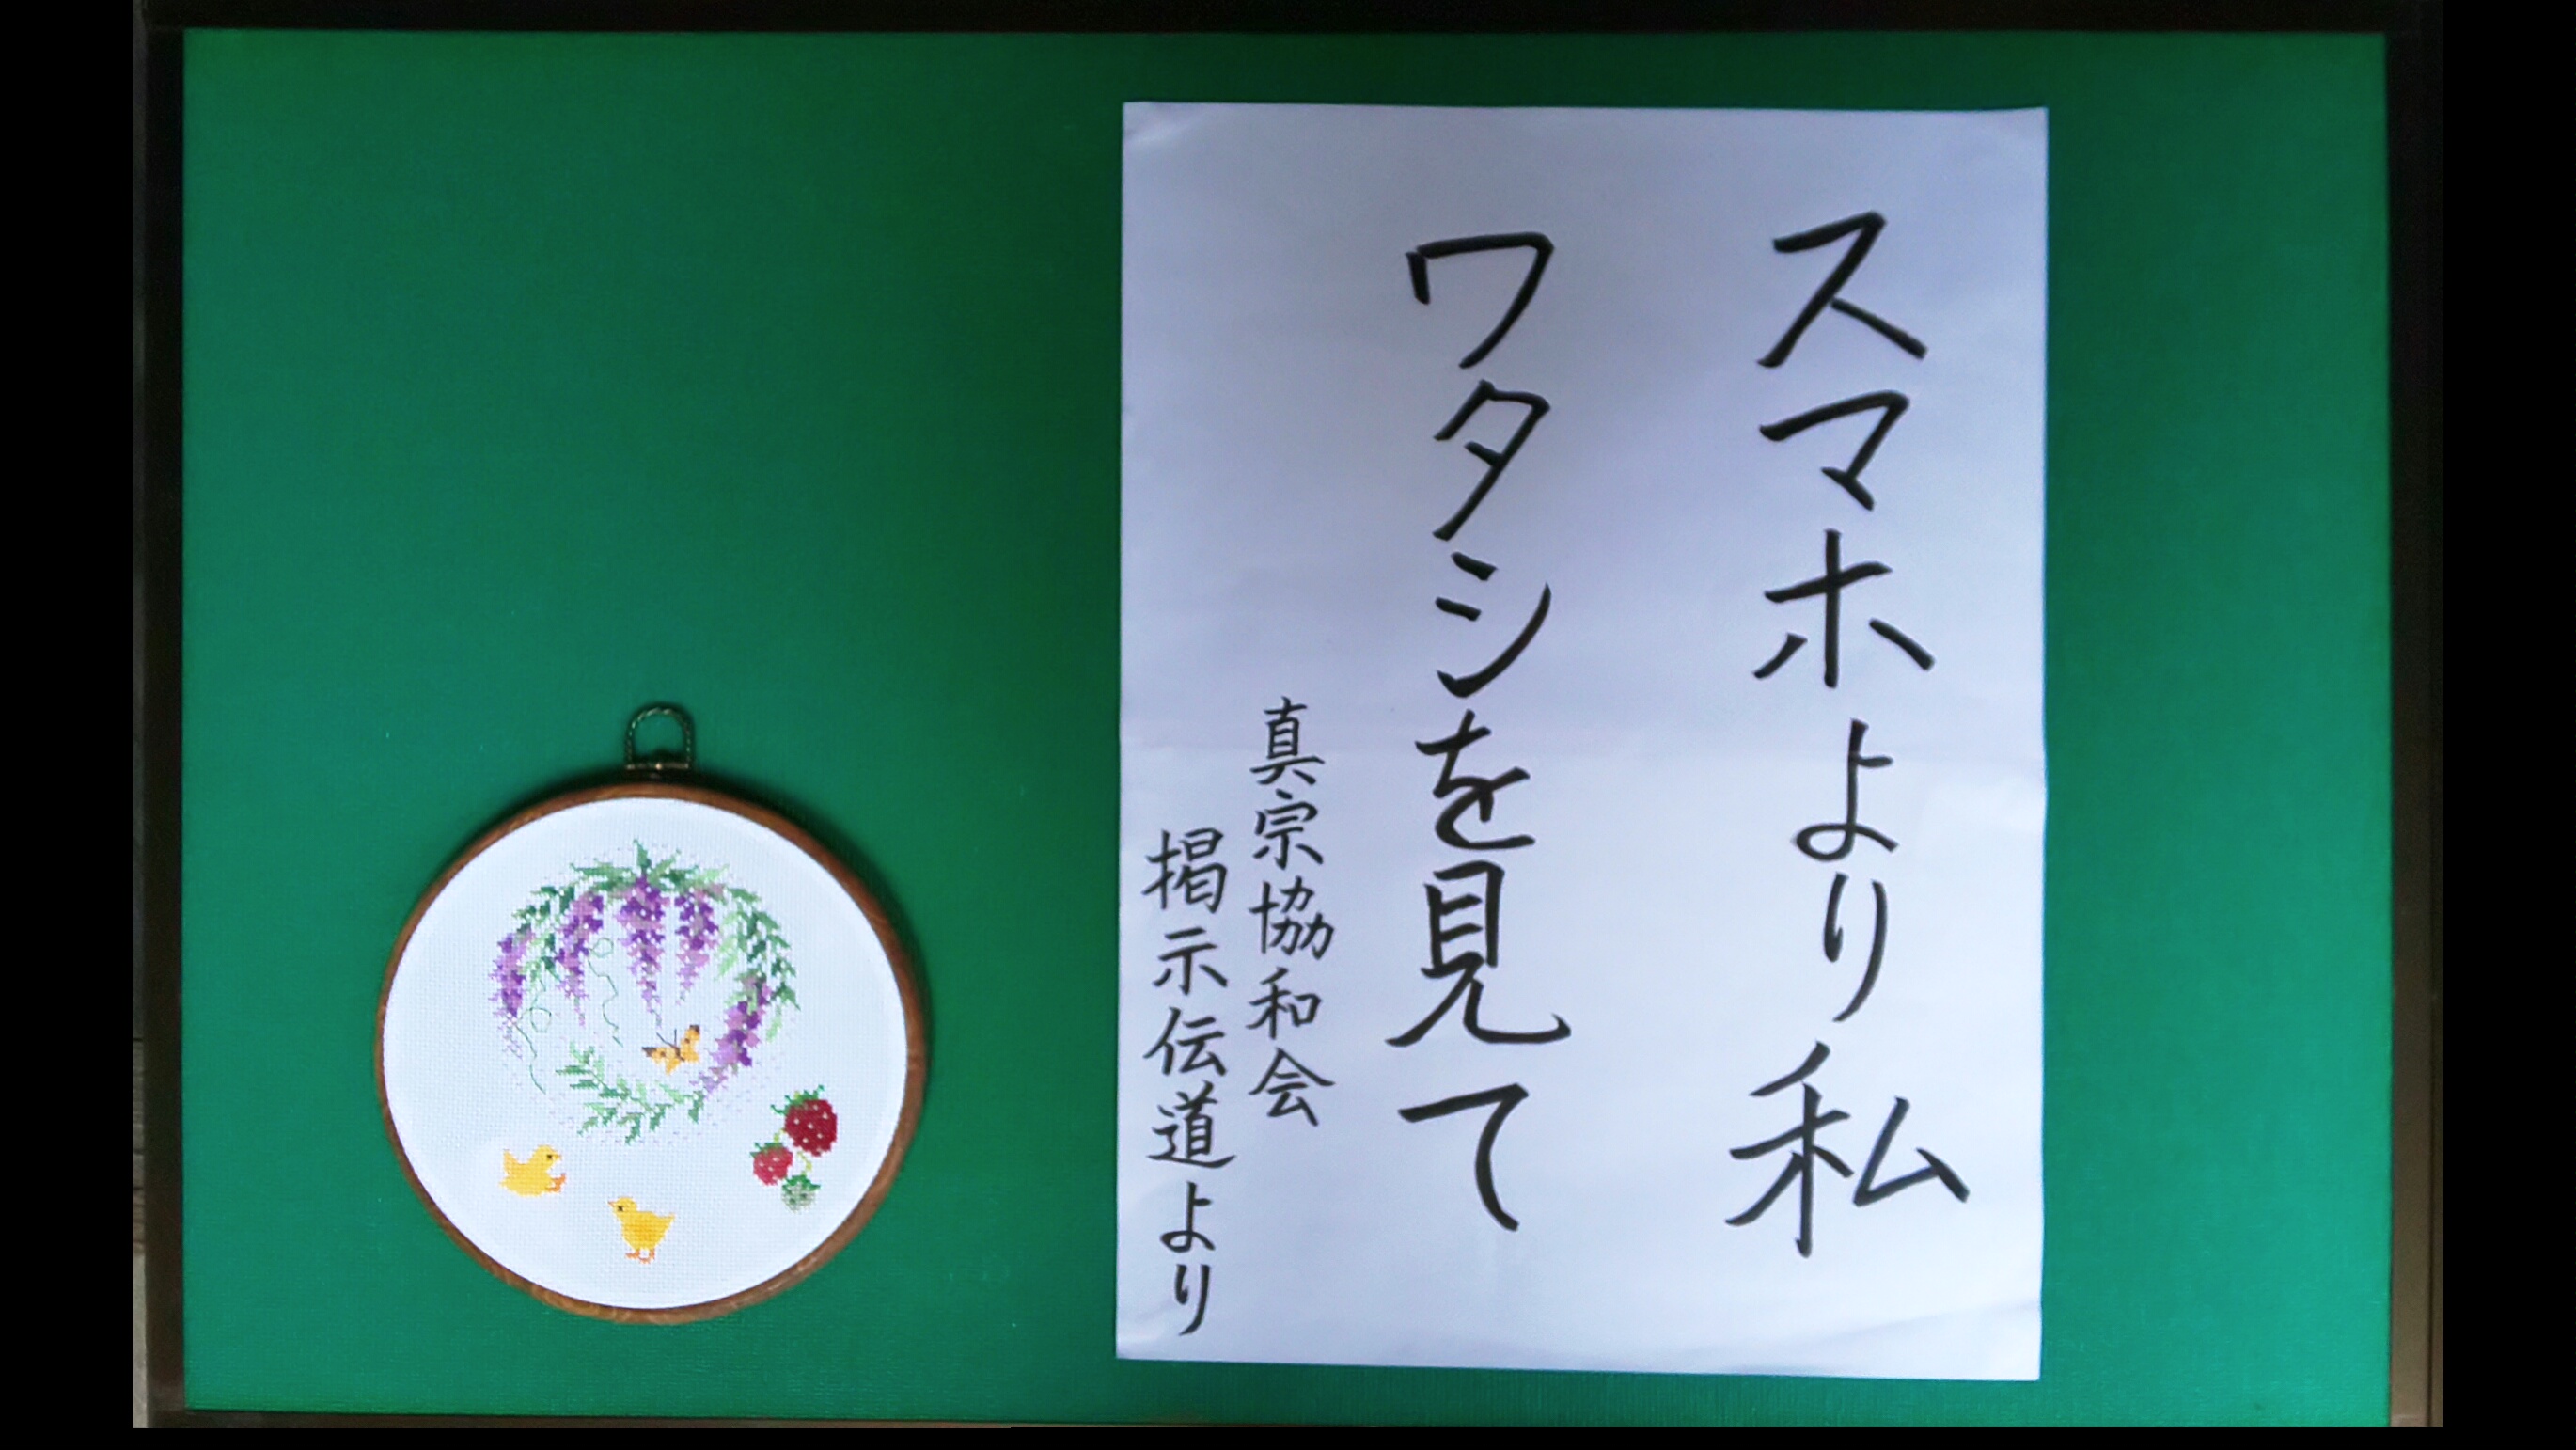 スマホより私
ワタシを見て
真宗協和会
掲示伝道より